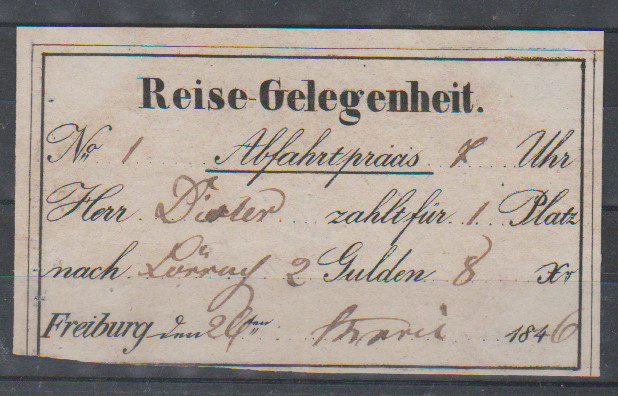 Reise-Gelegenheit.
No 1 Abfahrt präcis 7 Uhr
Herr Dieter zahlt für 1 Platz
nach Lörrach 2 Gulden 8 Xr
Freiburg den 26ten 1846